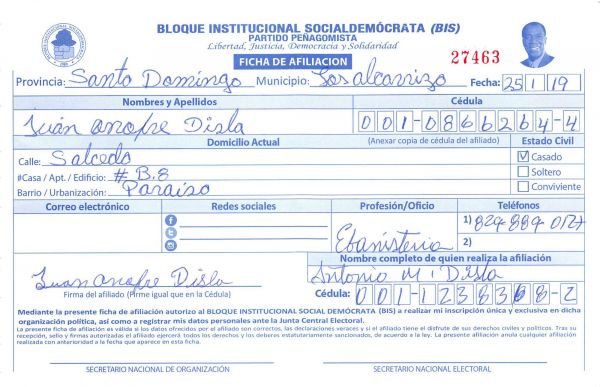 BLOQUE INSTITUCIONAL SOCIALDEMÓCRATA (BIS)
PARTIDO PEÑAGOMISTA
Libertad, Justicia, Democracia y Solidaridad
FICHA DE AFILIACION
27463
Provincia: Santo Domingo Municipio: Los alcarrizo Fecha: 25 1 19
Nombres y Apellidos Cédula
Juán onofre Disla 001-0866264-4
Domicilio Actual (Anexar copia de cédula del afiliado) Estado Civil
Calle: Salcedo Casado
#Casa / Apt. / Edificio: # B.8 Soltero
Barrio / Urbanización: Paraiso Conviviente
Correo electrónico Redes sociales Profesión/Oficio Teléfonos
1) 829-889-0127
Ebanisteria 2)
Nombre completo de quien realiza la afiliación
Juan onofre Disla Antonio M. Disla
Firma del afiliado (Firme igual que en la Cédula) Cédula: 001-1238368-2
Mediante la presente ficha de afiliación autorizo al BLOQUE INSTITUCIONAL SOCIAL DEMÓCRATA (BIS) a realizar mi inscripción única y exclusiva en dicha
organización política, así como a registrar mis datos personales ante la Junta Central Electoral.
La presente ficha de afiliación es válida si los datos ofrecidos por el afiliado son correctos, las declaraciones veraces y si el afiliado tiene el disfrute de sus derechos civiles y políticos. Tras su
recepción, sello y firmas autorizadas el afiliado ejercerá todos los derechos y los deberes estatutariamente sancionados, de acuerdo a la ley. La presente afiliación anula cualquier afiliación
realizada con anterioridad a la fecha que aparece en esta ficha.
SECRETARIO NACIONAL DE ORGANIZACIÓN SECRETARIO NACIONAL ELECTORAL